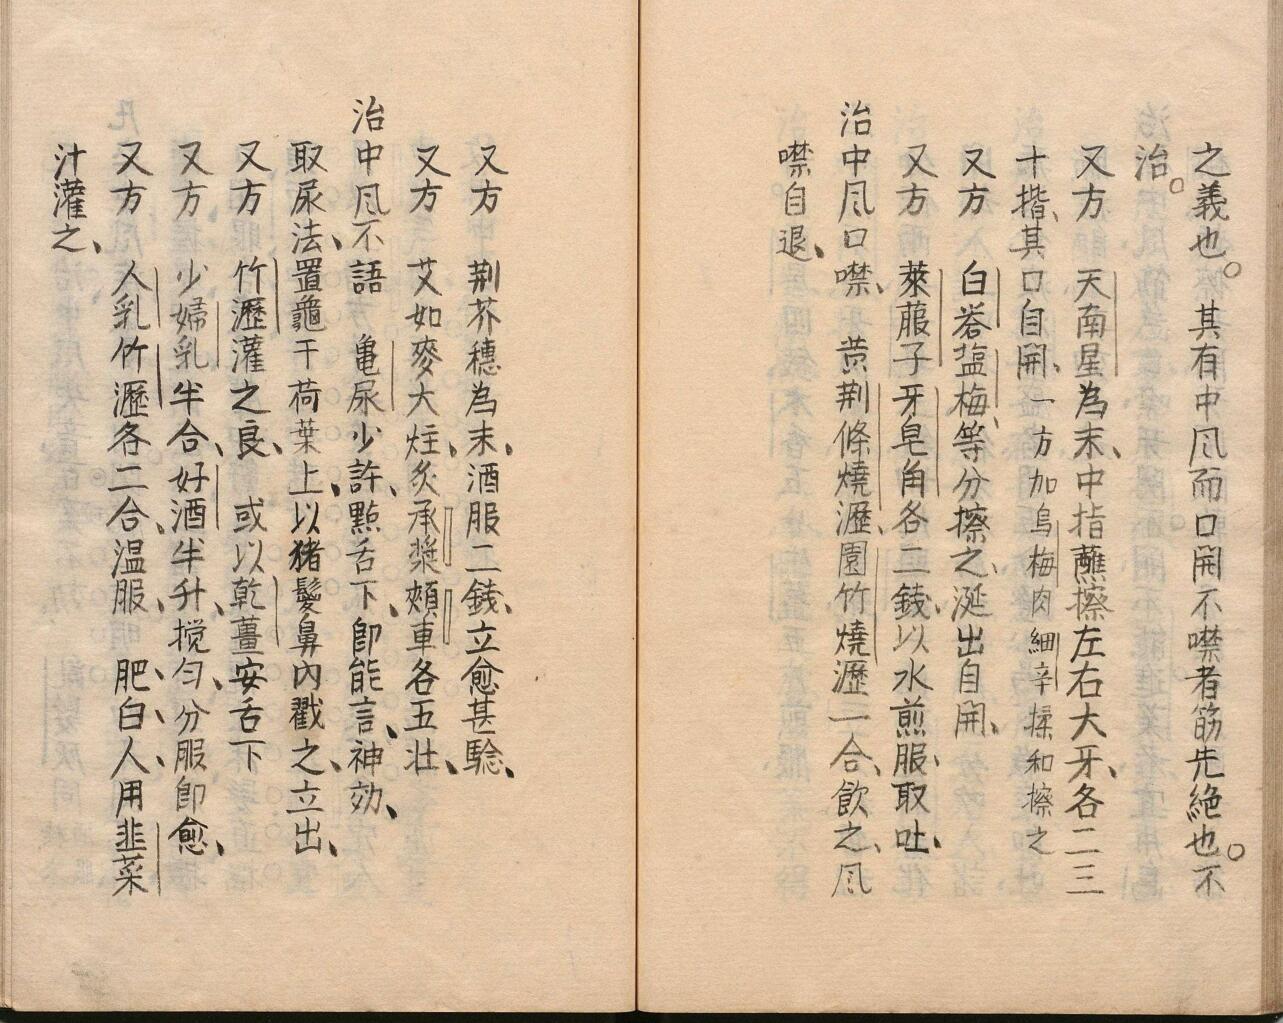 之義也。其有中風而口開不噤者筋先絶也。不
治。
又方　天南星為末、中指蘸擦左右大牙、各二三
十揩、其口自開、一方加烏梅肉細辛揉和擦之
又方　白礬塩梅等分擦之、涎出自開、
又方　萊菔子牙皂角各二錢以水煎服取吐、
治中風口噤、黄荆條燒瀝、園竹燒瀝一合、飲之、風
噤自退、
又方　荆芥穗為末、酒服二錢、立愈甚驗、
又方　艾如麥大炷、灸承漿頰車各五壮、
治中風不語　亀尿少許、點舌下、即能言、神効、
取尿法、置龜于荷葉上、以猪鬃鼻內戳之、立出、
又方　竹瀝灌之良、或以乾薑安舌下
又方　少婦乳半合、好酒半升、搅匀、分服即愈、
又方　人乳竹瀝各二合、温服、肥白人、用韭菜
汁灌之、